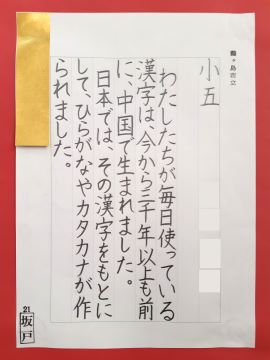 鶴ヶ島市立
小五
わたしたちが毎日使っている
漢字は、今から三千年以上も前
に、中国で生まれました。
日本では、その漢字をもとに
して、ひらがなやカタカナが作
られました。
21
坂戸